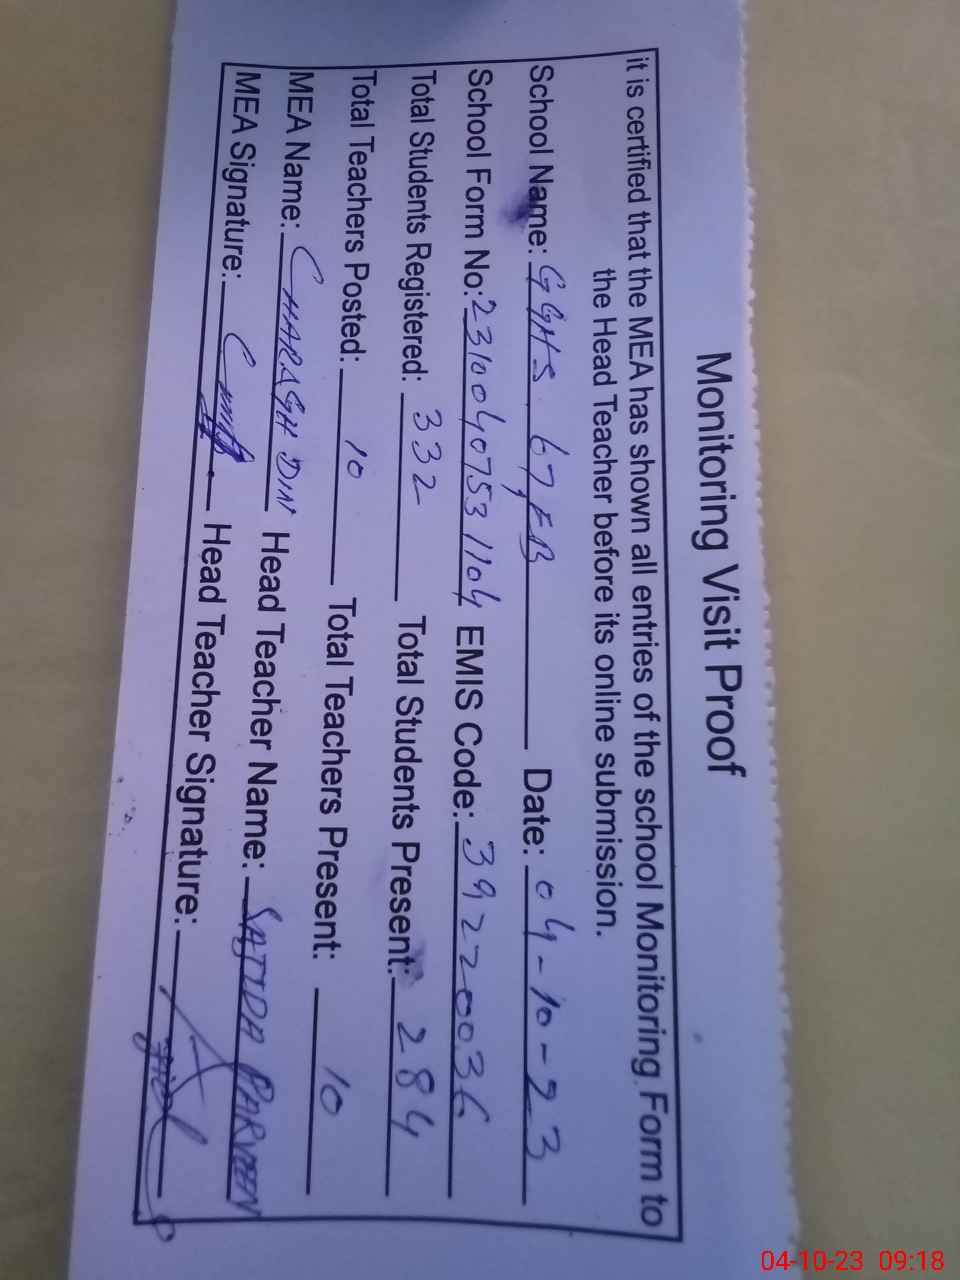 Monitoring Visit Proof
it is certified that the MEA has shown all entries of the school Monitoring Form to
the Head Teacher before its online submission.
School Name: GGHS 67, FB Date: 04-10-23
School Form No: 23100407531104 EMIS Code: 39220036
Total Students Registered: 332 Total Students Present: 284
Total Teachers Posted: 10 Total Teachers Present: 10
MEA Name: CHARAGH DIN Head Teacher Name: SAJIDA PARVEEN
MEA Signature: Head Teacher Signature:
04-10-23 09:18